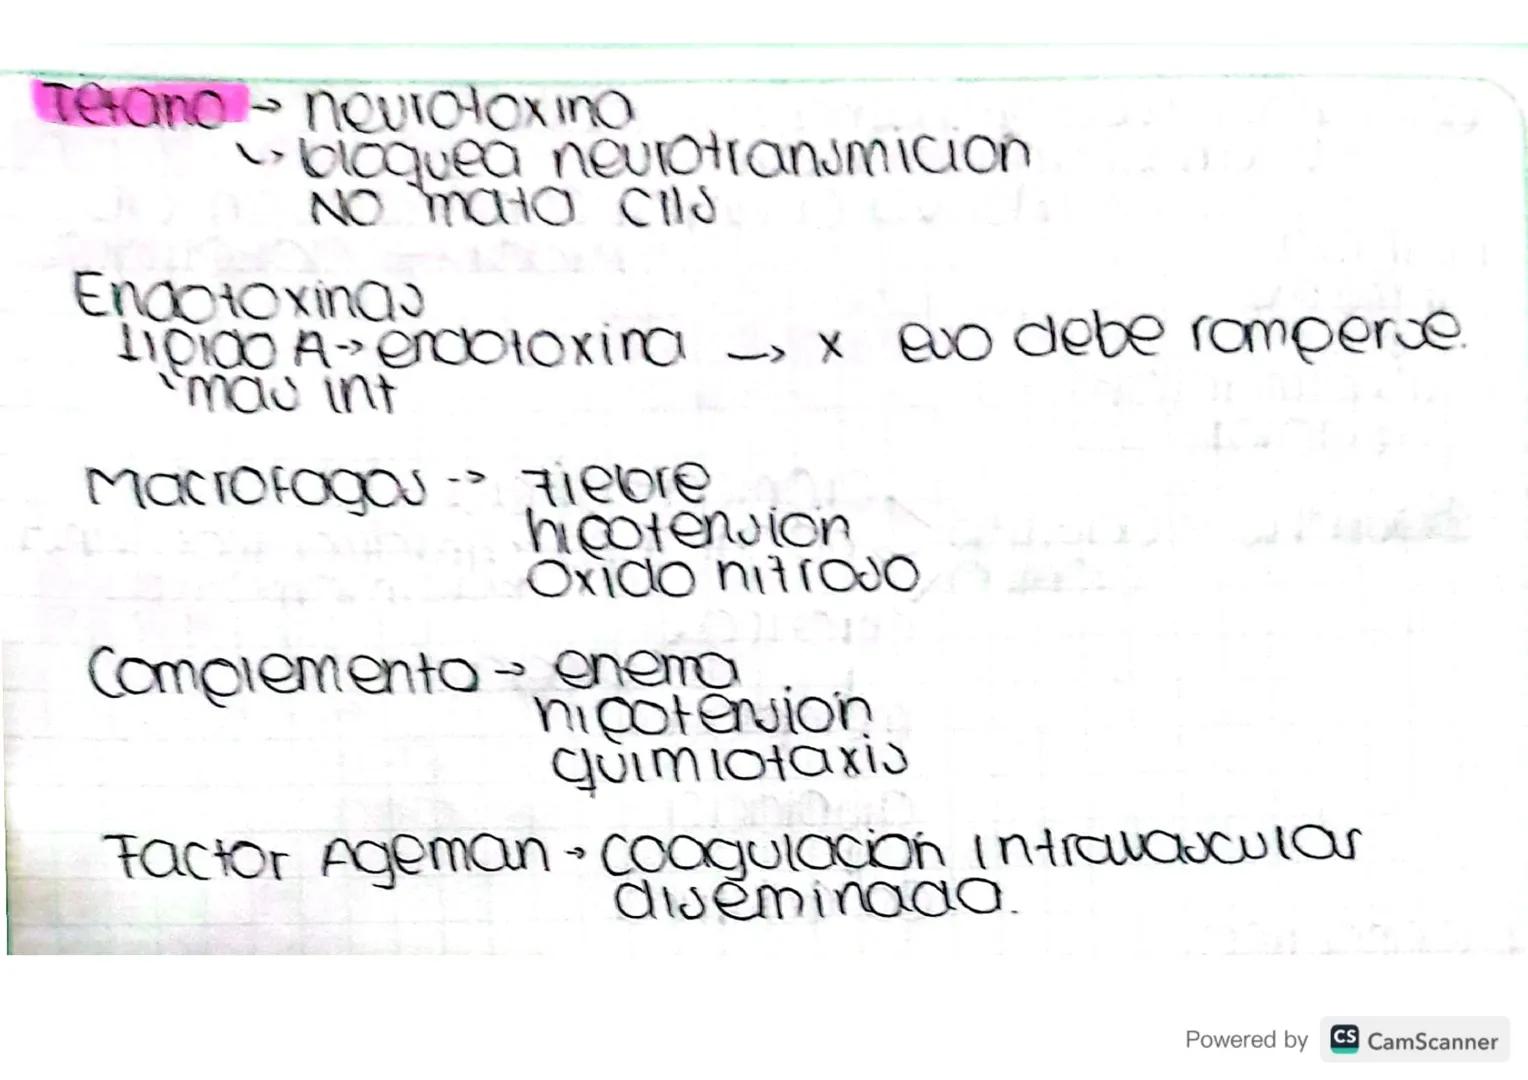 Tetano → neurotoxina
↳ bloquea neurotransmicion
NO mata clls
Endotoxinas
Lipido A → endotoxina → x eso debe romperse.
↳ mas int
Macrofagos --> Fiebre
hipotension
Oxido nitroso
Complemento → enema
hipotension
quimiotaxis
Factor Ageman → coagulacion intravascular
diseminada.
Powered by CS CamScanner